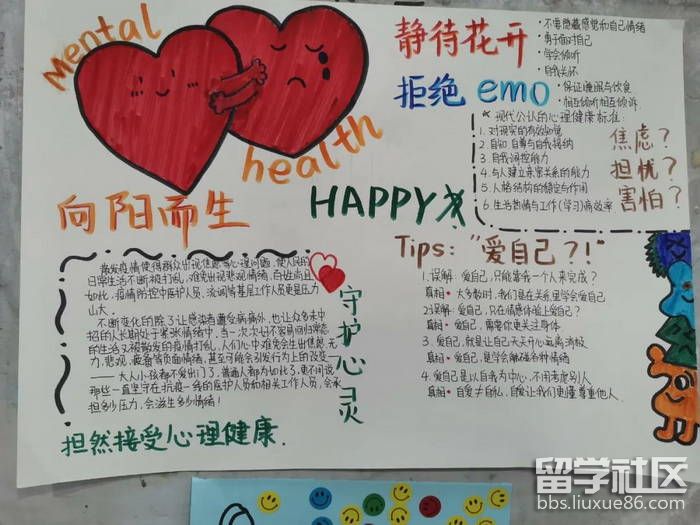 mental
health
静待花开
拒绝 emo
·不要隐藏感觉和自己情绪
·勇于面对自己
·学会倾听
·自我关怀
·保证睡眠与饮食
·相互倾听相互倾诉
现代公认的心理健康标准:
1. 对现实的有效知觉
2. 自知自尊与自我接纳
3. 自我调控能力
4. 与人建立亲密关系的能力
5. 人格结构的稳定与作用
6. 生活热情与工作(学习)高效率
焦虑?
担忧?
害怕?
向阳而生
HAPPY
散发疫情使得群众出现焦虑等心理问题,使人民的
日常生活不断被打乱,难免出现悲观情绪,百姓尚且
如此,疫情防控中医护人员、流调等基层工作人员更是压力
山大。
不断变化的
招的人长期处于紧张情绪中,当一次次
的生活又被散发的疫情打乱,人们心中难免会生出焦虑、无
力、悲观、疲备等负面情绪,甚至可能会引发行为上的改变
——大人小孩都不爱出门了,普通人都为如此了,更不问说
那些一直坚守在抗疫一线的医护人员和相关工作人员,会承
担多少压力,会滋生多少情绪!
守护心灵
担然接受心理健康.
Tips:“爱自己?!”
1. 误解:爱自己,只能靠我一个人来完成?
真相:大多数时,我们是在关系里学会爱自己
2. 误解:爱自己,只在情感体验上爱自己?
真相:爱自己,需要你更关注身体
3. 爱自己,就是让自己天天开心,远离消极
真相:爱自己,是学会触碰各种情绪
4. 爱自己是以自我为中心,不用考虑别人
真相:自爱≠自私,自爱让我们更懂尊重他人.
留学社区
bbs.liuxue86.com